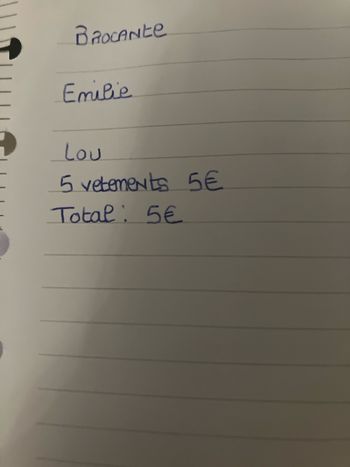 BROCANTE
Emilie
Lou
5 vetements 5€
Total: 5€